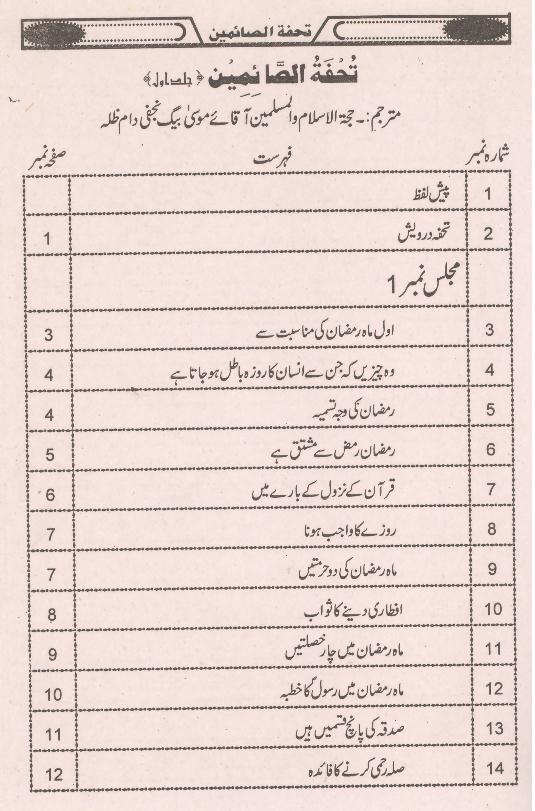 تحفۃ الصائمین
تُحْفَةُ الصَّائِمِیْن ﴿جلد اول﴾
مترجم:۔ حجۃ الاسلام والمسلمین آقائے موسیٰ بیگ نجفی دام ظلہ
شمارہ نمبر فہرست صفحہ نمبر
1 پیش لفظ
2 تحفہ درویش 1
مجلس نمبر 1
3 اول ماہ رمضان کی مناسبت سے 3
4 وہ چیزیں کہ جن سے انسان کا روزہ باطل ہو جاتا ہے 4
5 رمضان کی وجہ تسمیہ 4
6 رمضان رمض سے مشتق ہے 5
7 قرآن کے نزول کے بارے میں 6
8 روزے کا واجب ہونا 7
9 ماہ رمضان کی دو حرمتیں 7
10 افطاری دینے کا ثواب 8
11 ماہ رمضان میں چار خصلتیں 9
12 ماہ رمضان میں رسولؐ کا خطبہ 10
13 صدقہ کی پانچ قسمیں ہیں 11
14 صلہ رحمی کرنے کا فائدہ 12